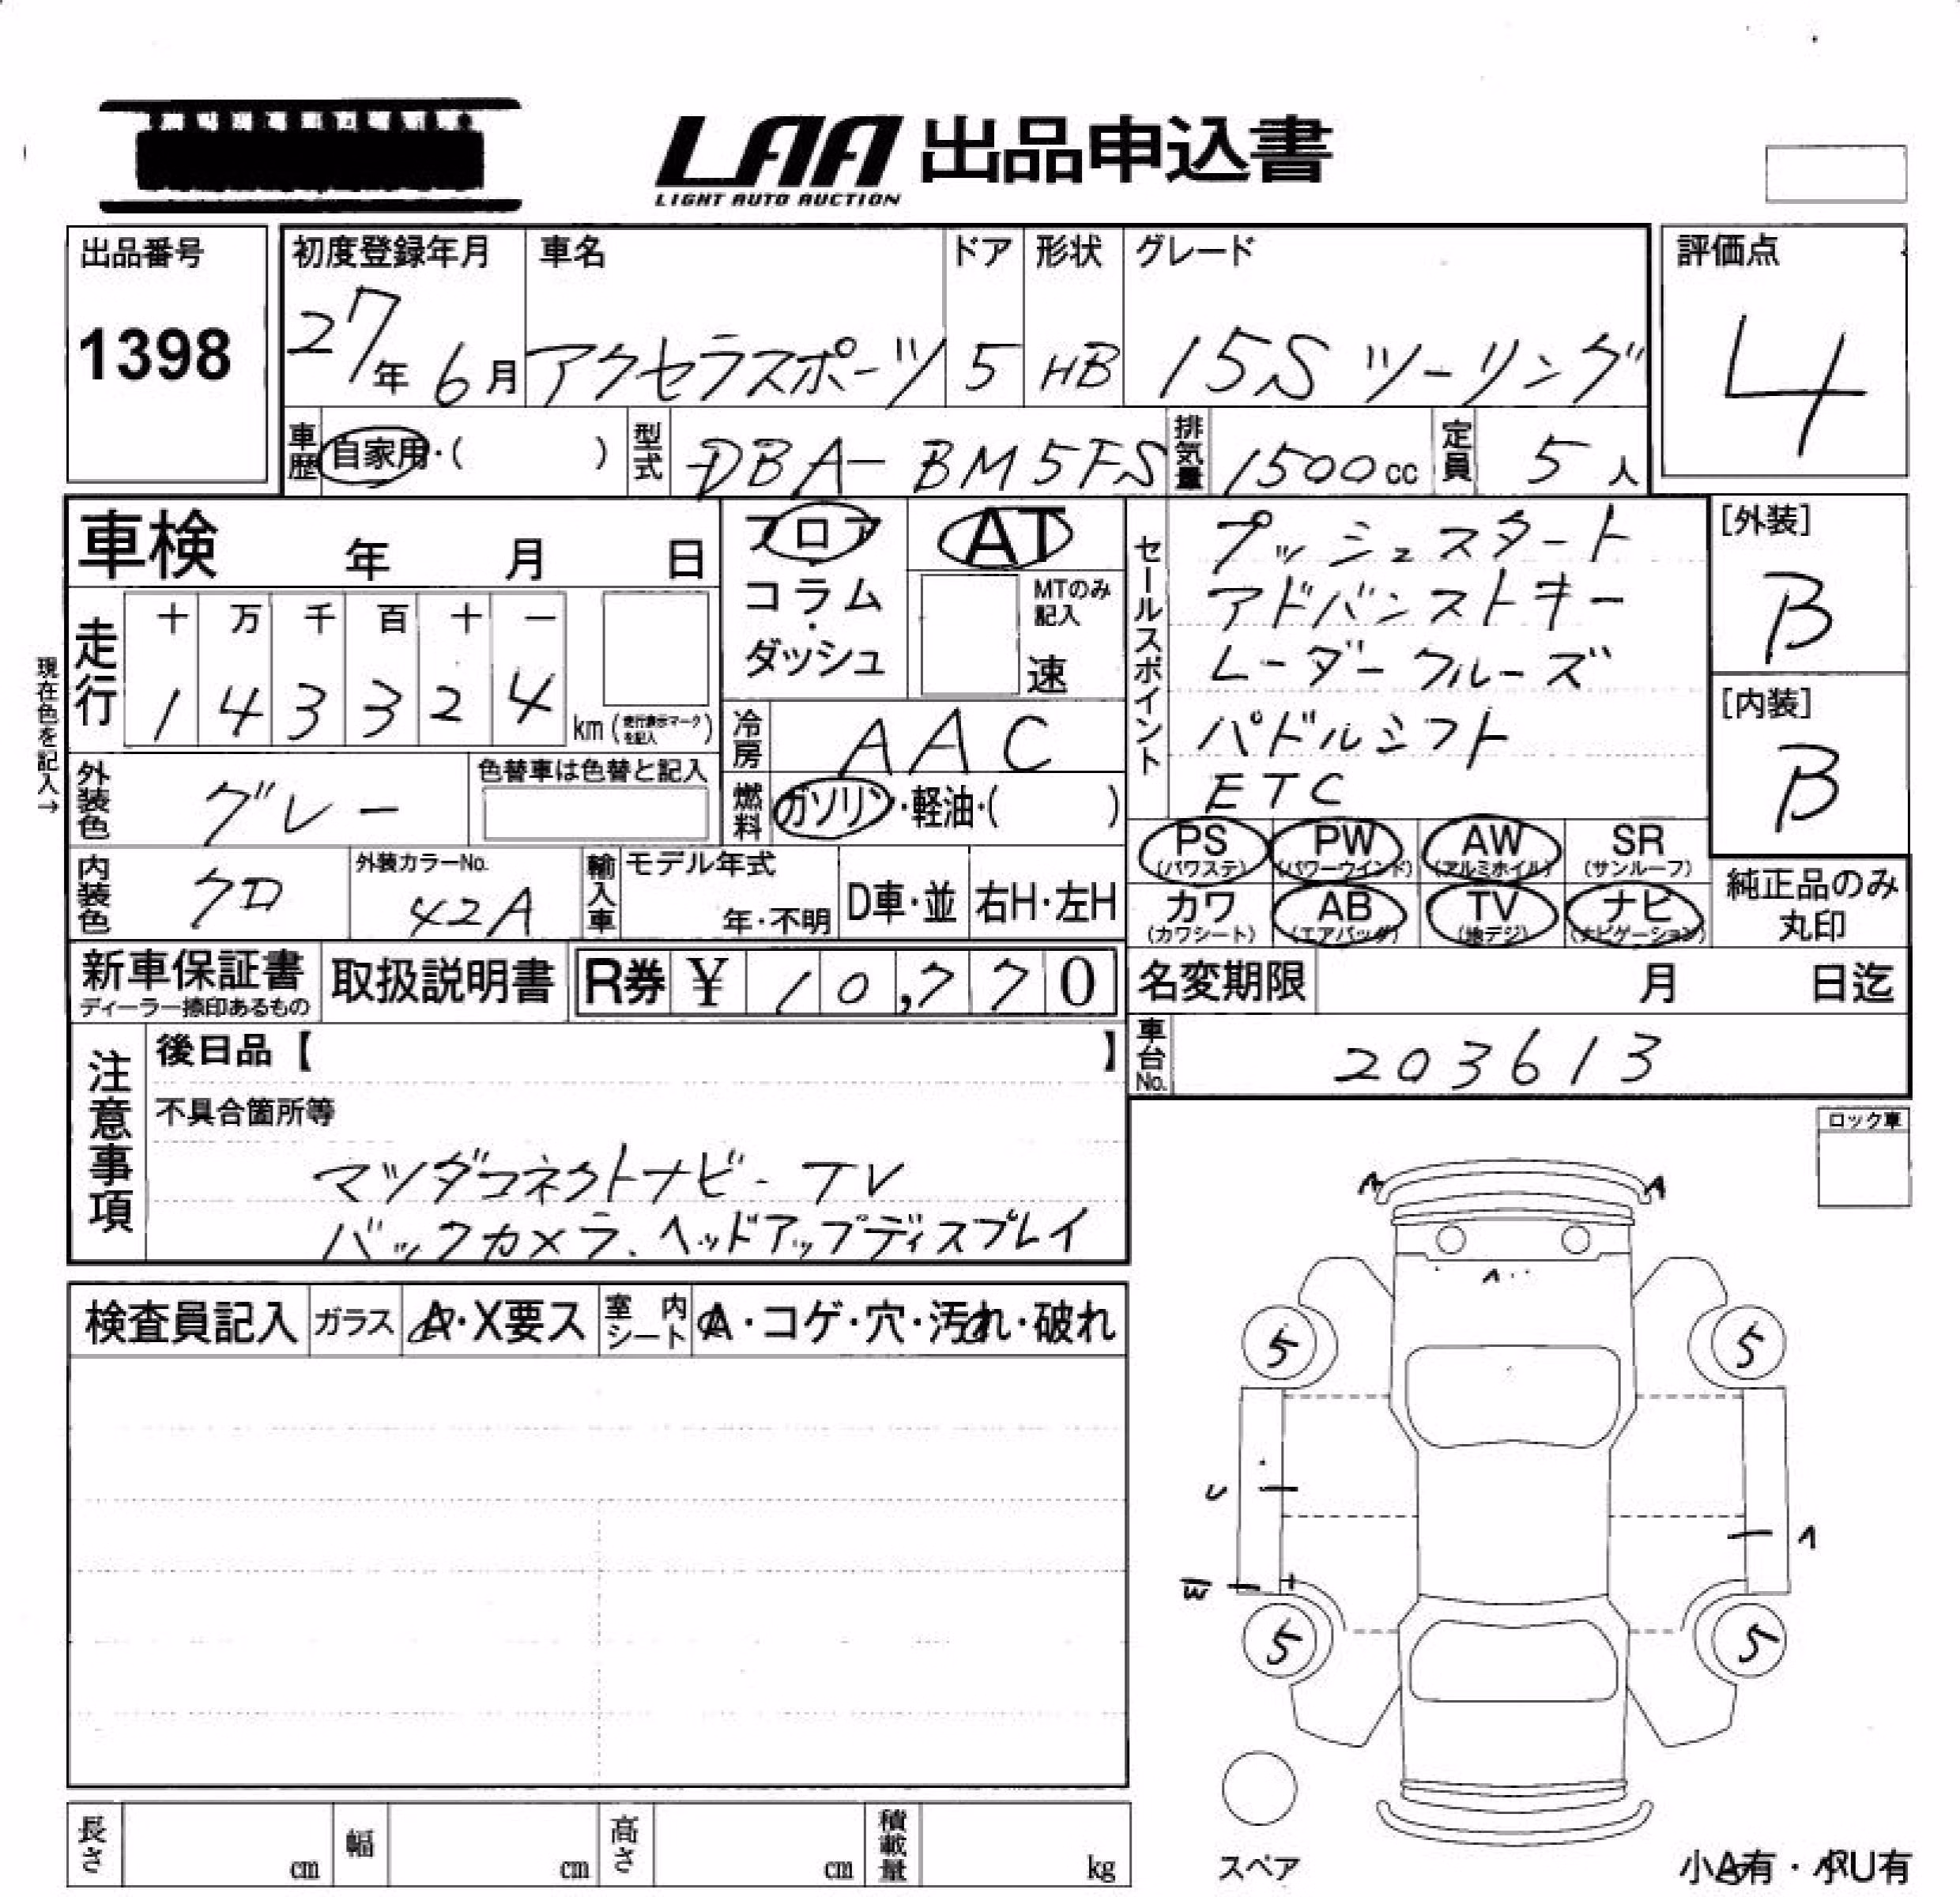 LAA 出品申込書
LIGHT AUTO AUCTION
出品番号
1398
初度登録年月
27年 6月
車名
アクセラスポーツ
ドア
5
形状
HB
グレード
15S ツーリング
評価点
4
車歴
自家用・( )
型式
DBA-BM5FS
排気量
1500cc
定員
5人
車検 年 月 日
フロア
コラム
・
ダッシュ
AT
MTのみ
記入
速
セールスポイント
プッシュスタート
アドバンストキー
レーダークルーズ
パドルシフト
ETC
[外装]
B
[内装]
B
現在色を記入→
走行
十 万 千 百 十 一
1 4 3 3 2 4
km (走行表示マークを記入)
冷房
AAC
燃料
ガソリン・軽油・( )
外装色
グレー
色替車は色替と記入
内装色
クロ
外装カラーNo.
42A
輸入車
モデル年式
年・不明
D車・並
右H・左H
PS
(パワステ)
PW
(パワーウインド)
AW
(アルミホイル)
SR
(サンルーフ)
カワ
(カワシート)
AB
(エアバッグ)
TV
(地デジ)
ナビ
(ナビゲーション)
純正品のみ
丸印
新車保証書
ディーラー捺印あるもの
取扱説明書
R券 ¥ 10,770
名変期限 月 日迄
車台No.
203613
注意事項
後日品【 】
不具合箇所等
マツダコネクトナビ・TV
バックカメラ、ヘッドアップディスプレイ
ロック車
検査員記入
ガラス
A・X要ス
室内
シート
A・コゲ・穴・汚れ・破れ
A
A
A
5
5
U
A
W
5
5
スペア
小A有・小U有
長さ
cm
幅
cm
高さ
cm
積載量
kg